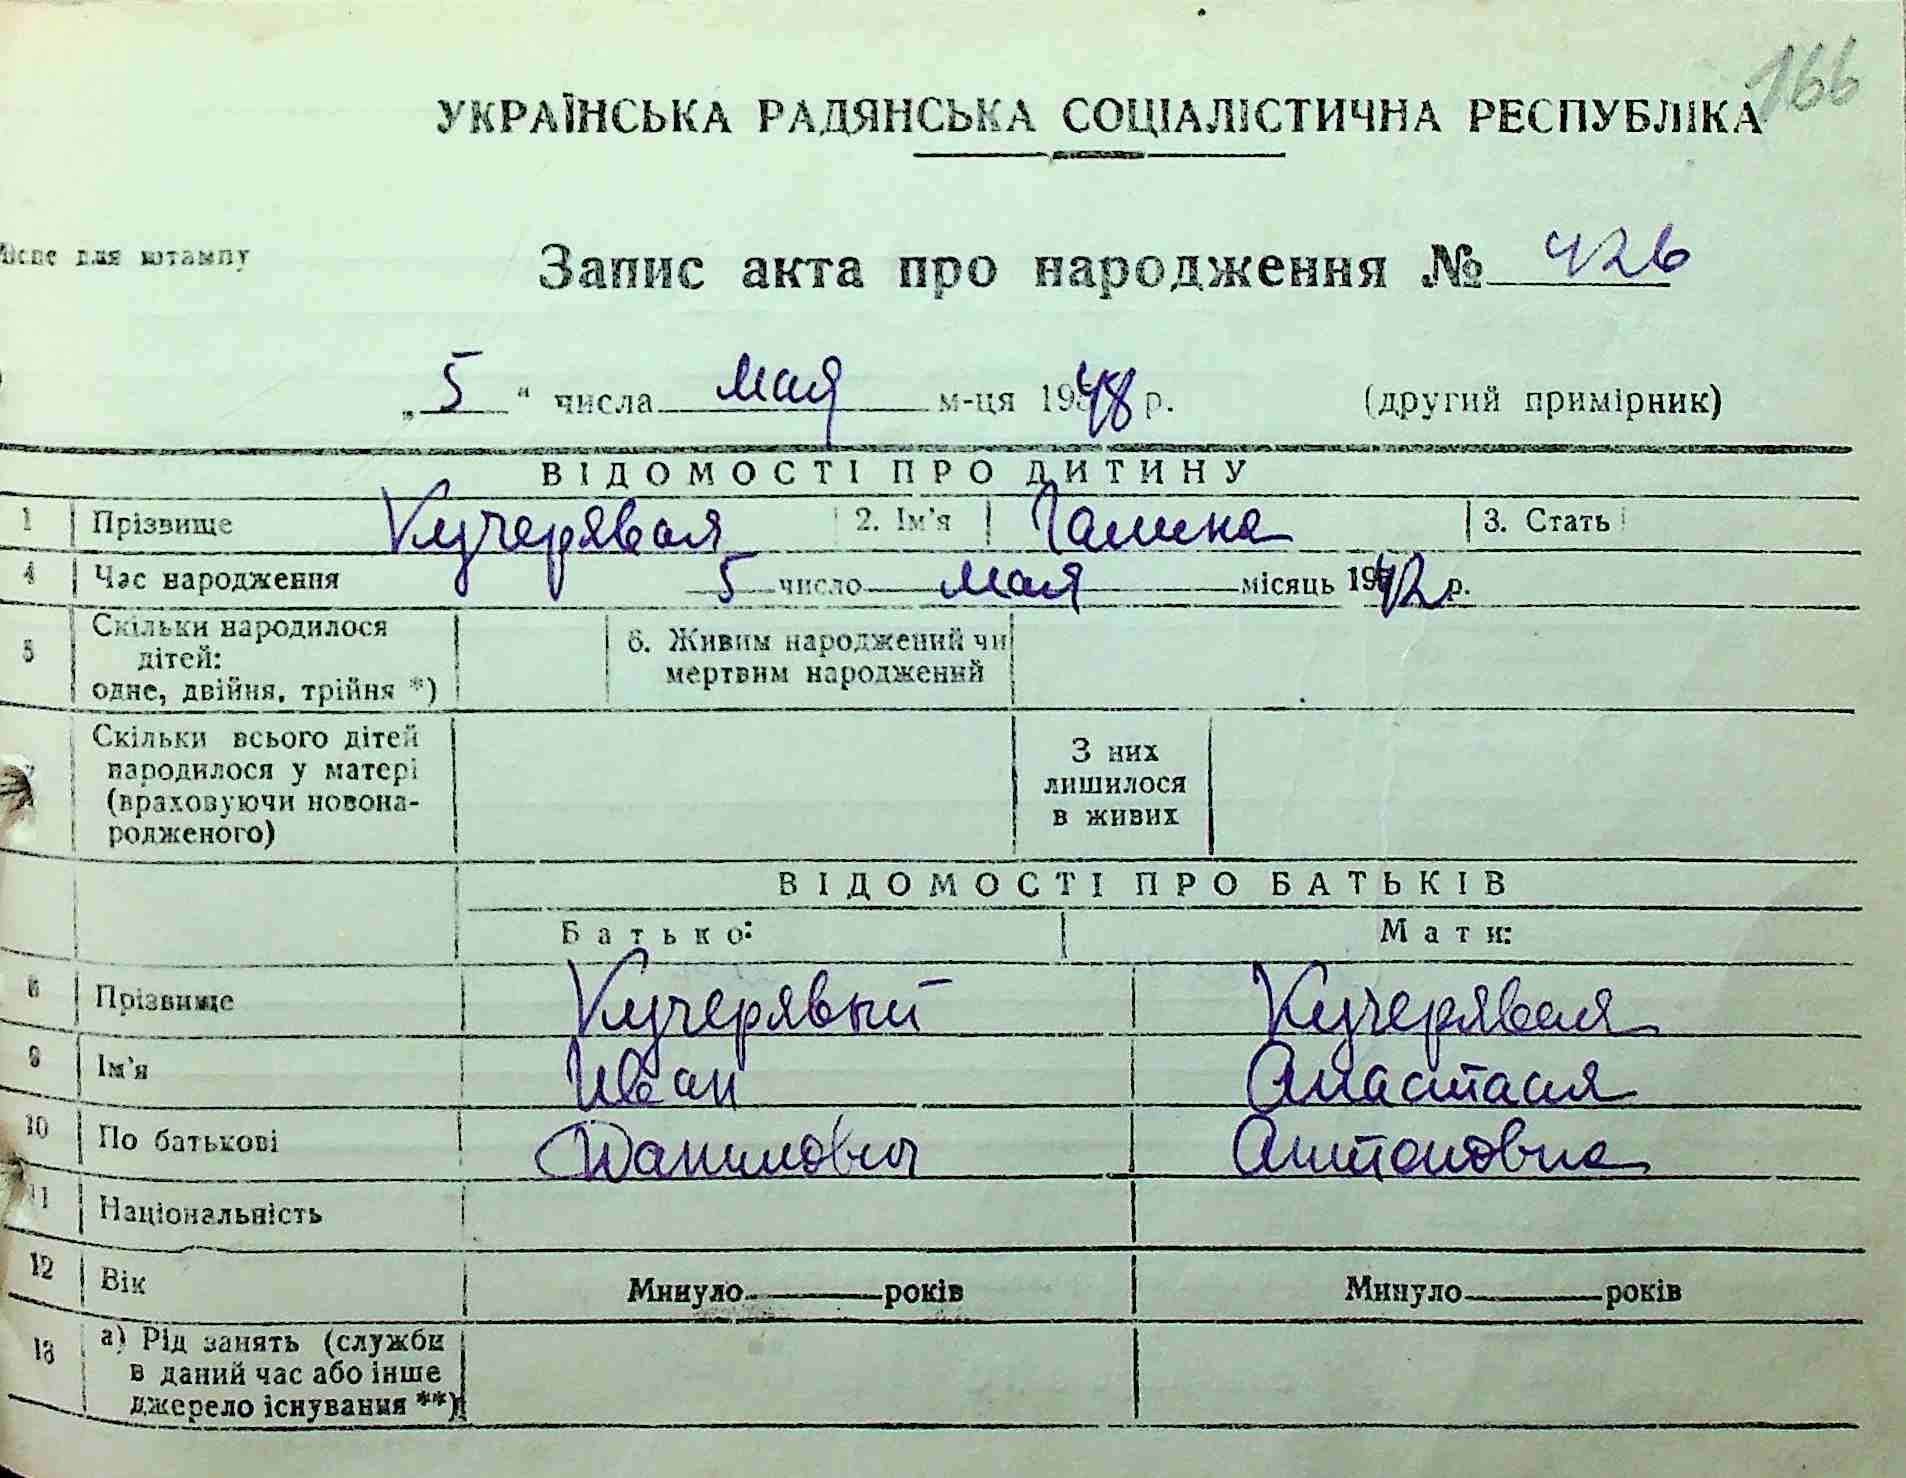 166
УКРАЇНСЬКА РАДЯНСЬКА СОЦІАЛІСТИЧНА РЕСПУБЛІКА
Місце для штампу
Запис акта про народження № 426
„ 5 “ числа мая м-ця 1948 р. (другий примірник)
ВІДОМОСТІ ПРО ДИТИНУ
1 Прізвище Кучерявая 2. Ім'я Галина 3. Стать
4 Час народження 5 число мая місяць 1942 р.
5 Скільки народилося
дітей:
одне, двійня, трійня *)
6. Живим народжений чи
мертвим народжений
7 Скільки всього дітей
народилося у матері
(враховуючи новона-
родженого)
З них
лишилося
в живих
ВІДОМОСТІ ПРО БАТЬКІВ
Батько: Мати:
8 Прізвище Кучерявый Кучерявая
9 Ім'я Иван Анастасия
10 По батькові Данилович Антоновна
11 Національність
12 Вік Минуло років Минуло років
13 а) Рід занять (служби
в даний час або інше
джерело існування **)